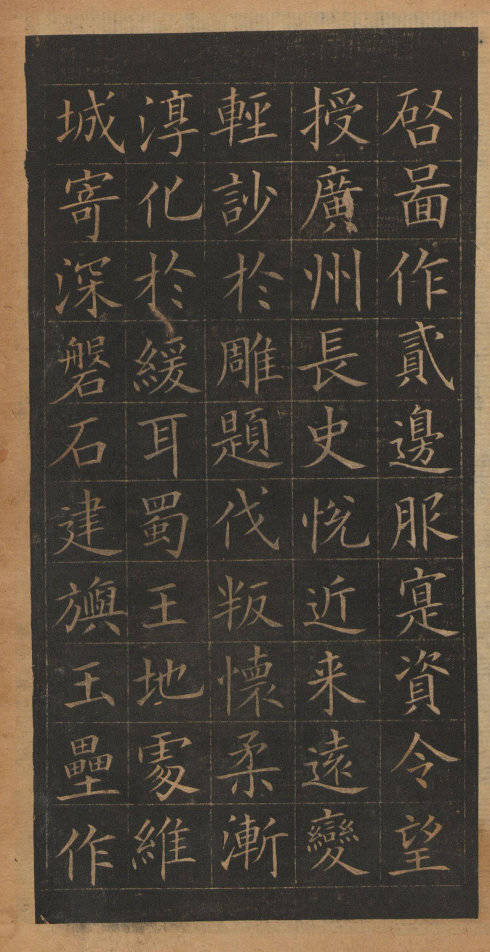 啓啚作貳邊服寔資令望
授廣州長史悅近来遠變
輕訬於雕題伐叛懷柔漸
淳化於緩耳蜀王地處維
城寄深磐石建旟玉壘作